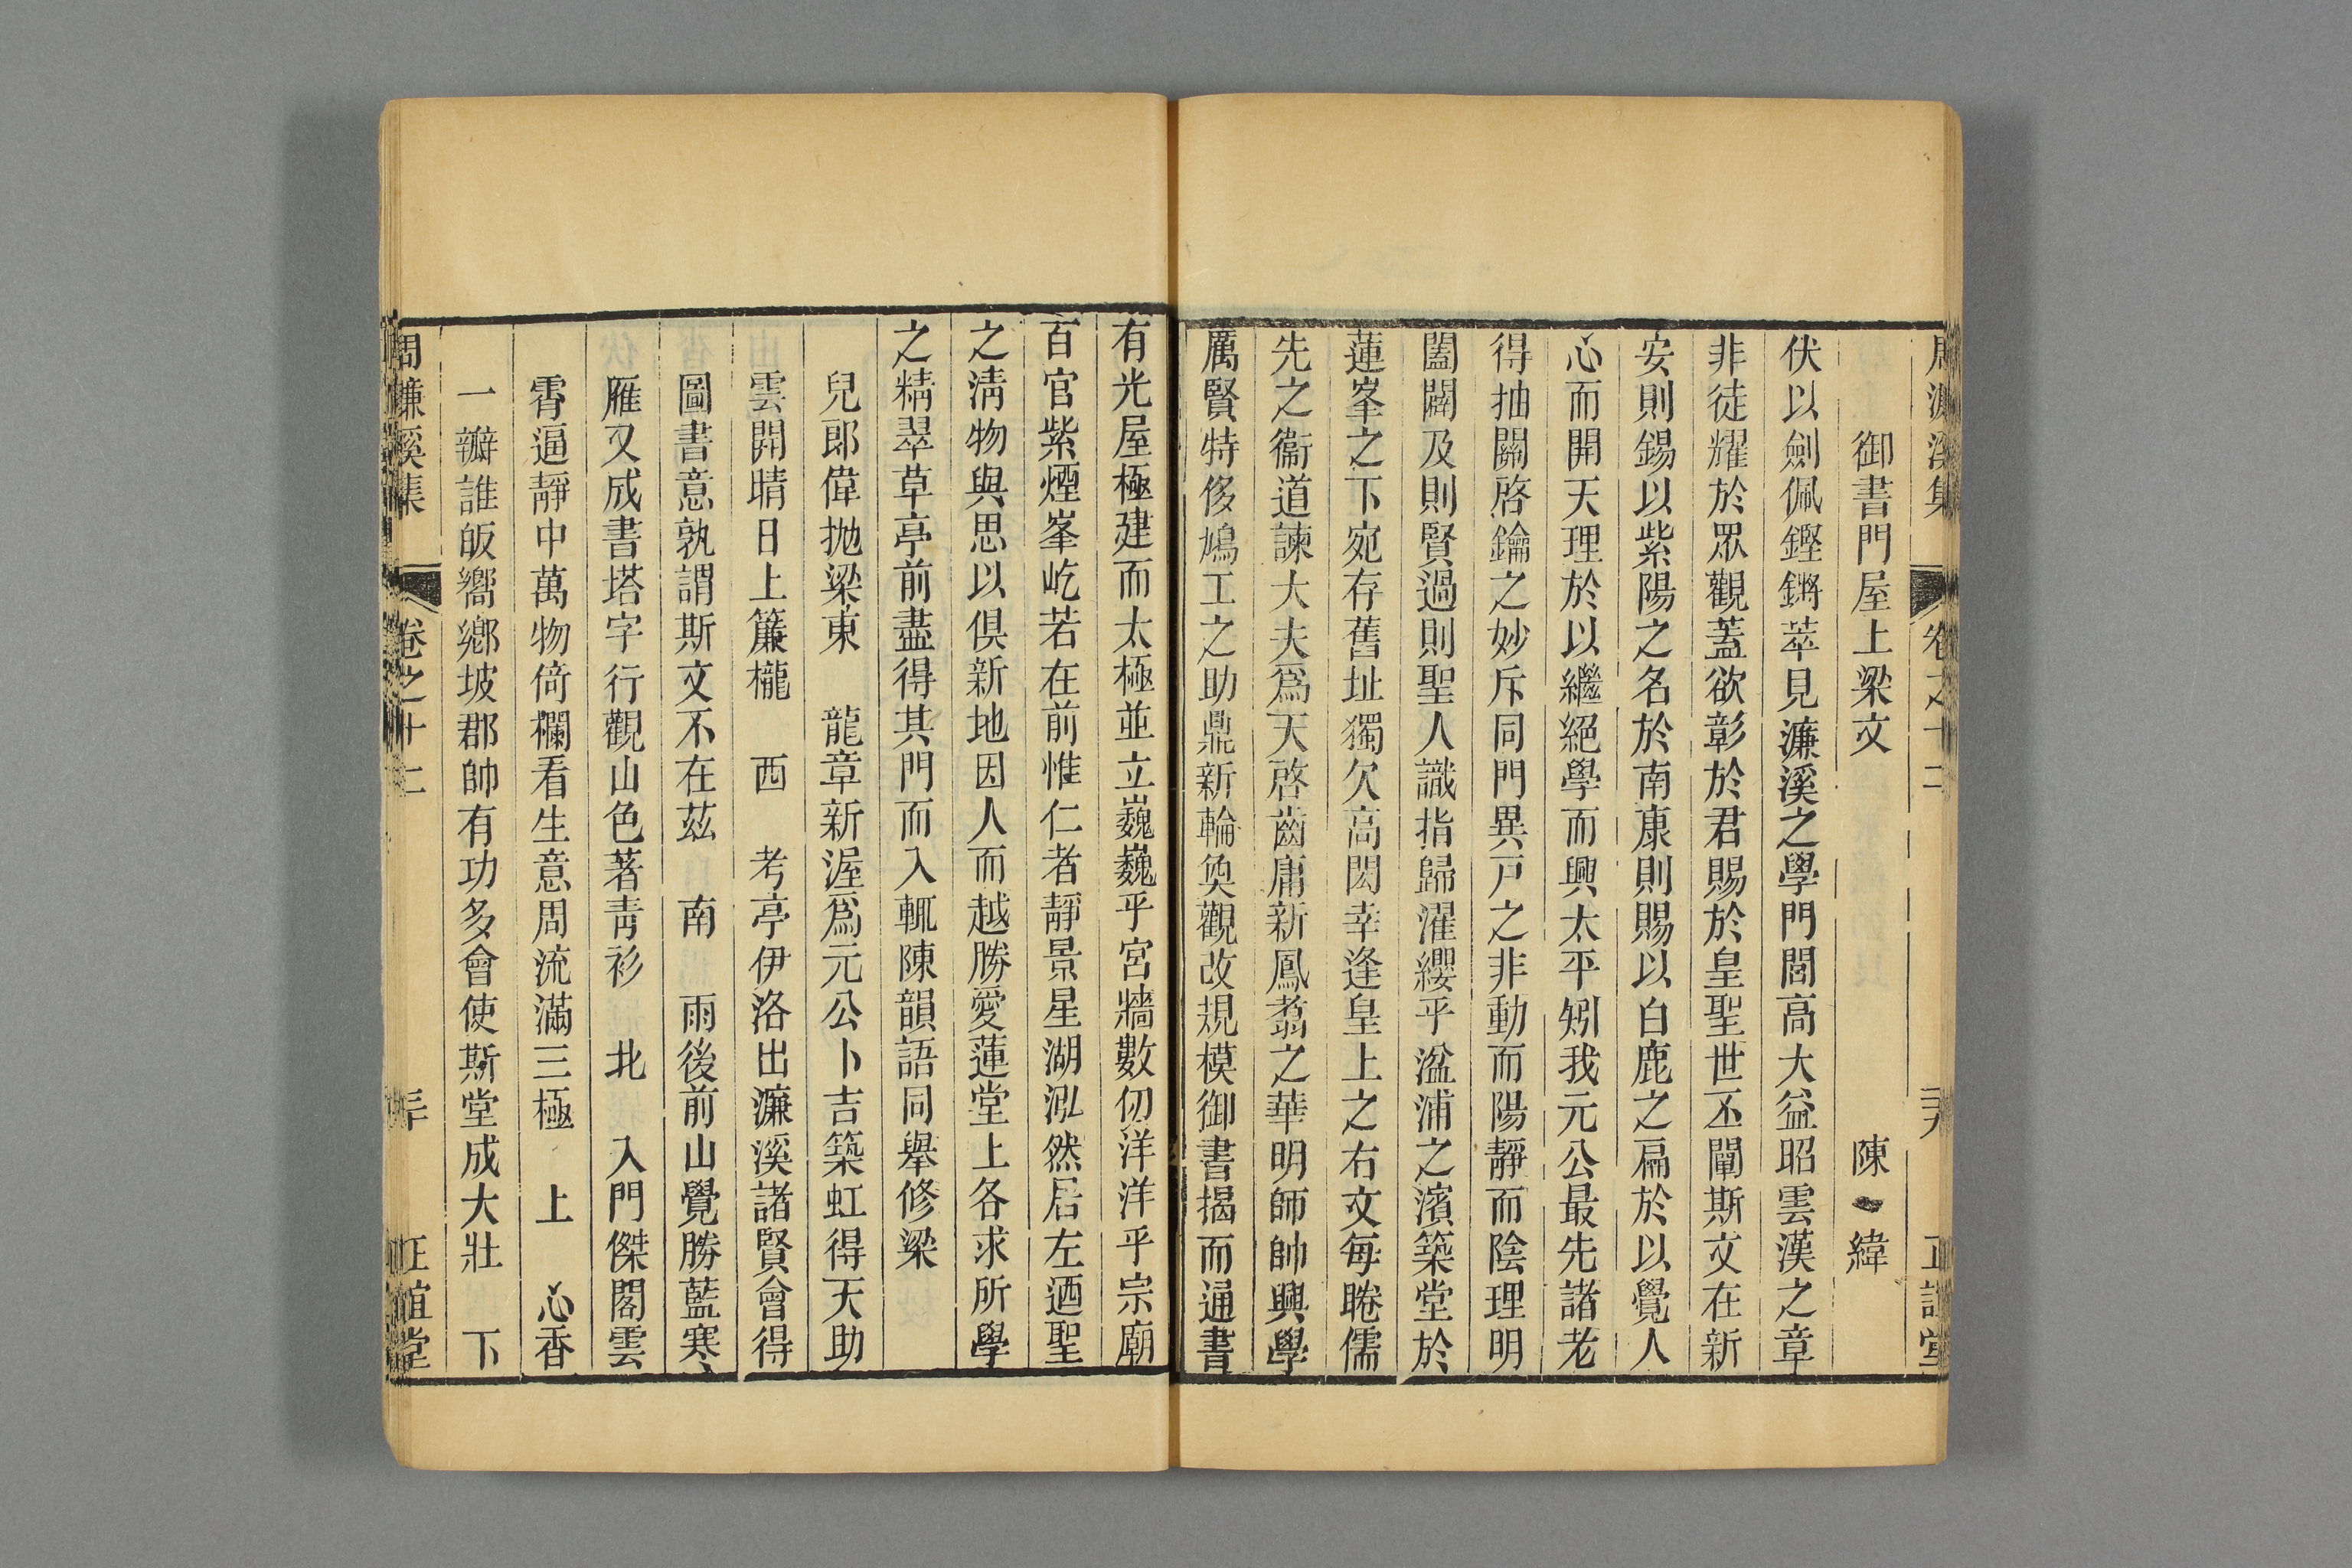 周濂溪集 卷之十二 正誼堂
御書門屋上梁文 陳緯
伏以劍佩鏗鏘萃見濂溪之學門閭高大益昭雲漢之章
非徒耀於眾觀蓋欲彰於君賜於皇聖世丕闡斯文在新
安則錫以紫陽之名於南康則賜以白鹿之扁於以覺人
心而開天理於以繼絕學而興太平矧我元公最先諸老
得抽關啓鑰之妙斥同門異戸之非動而陽靜而陰理明
闔闢及則賢過則聖人識指歸濯纓乎湓浦之濱築堂於
蓮峯之下宛存舊址獨欠高閎幸逢皇上之右文每睠儒
先之衞道諫大夫爲天啓齒庸新鳳翥之華明師帥興學
厲賢特侈鳩工之助鼎新輪奐觀改規模御書揭而通書
有光屋極建而太極並立巍巍乎宮牆數仞洋洋乎宗廟
百官紫煙峯屹若在前惟仁者靜景星湖泓然居左廼聖
之淸物與思以俱新地因人而越勝愛蓮堂上各求所學
之精翠草亭前盡得其門而入輒陳韻語同舉修梁
兒郎偉抛梁東 龍章新渥爲元公卜吉築虹得天助
雲開晴日上簾櫳 西 考亭伊洛出濂溪諸賢會得
圖書意孰謂斯文不在茲 南 雨後前山覺勝藍寒
雁又成書塔字行觀山色著靑衫 北 入門傑閣雲
霄逼靜中萬物倚欄看生意周流滿三極 上 心香
一瓣誰皈嚮鄉坡郡帥有功多會使斯堂成大壯 下
周濂溪集 卷之十二 三十 正誼堂